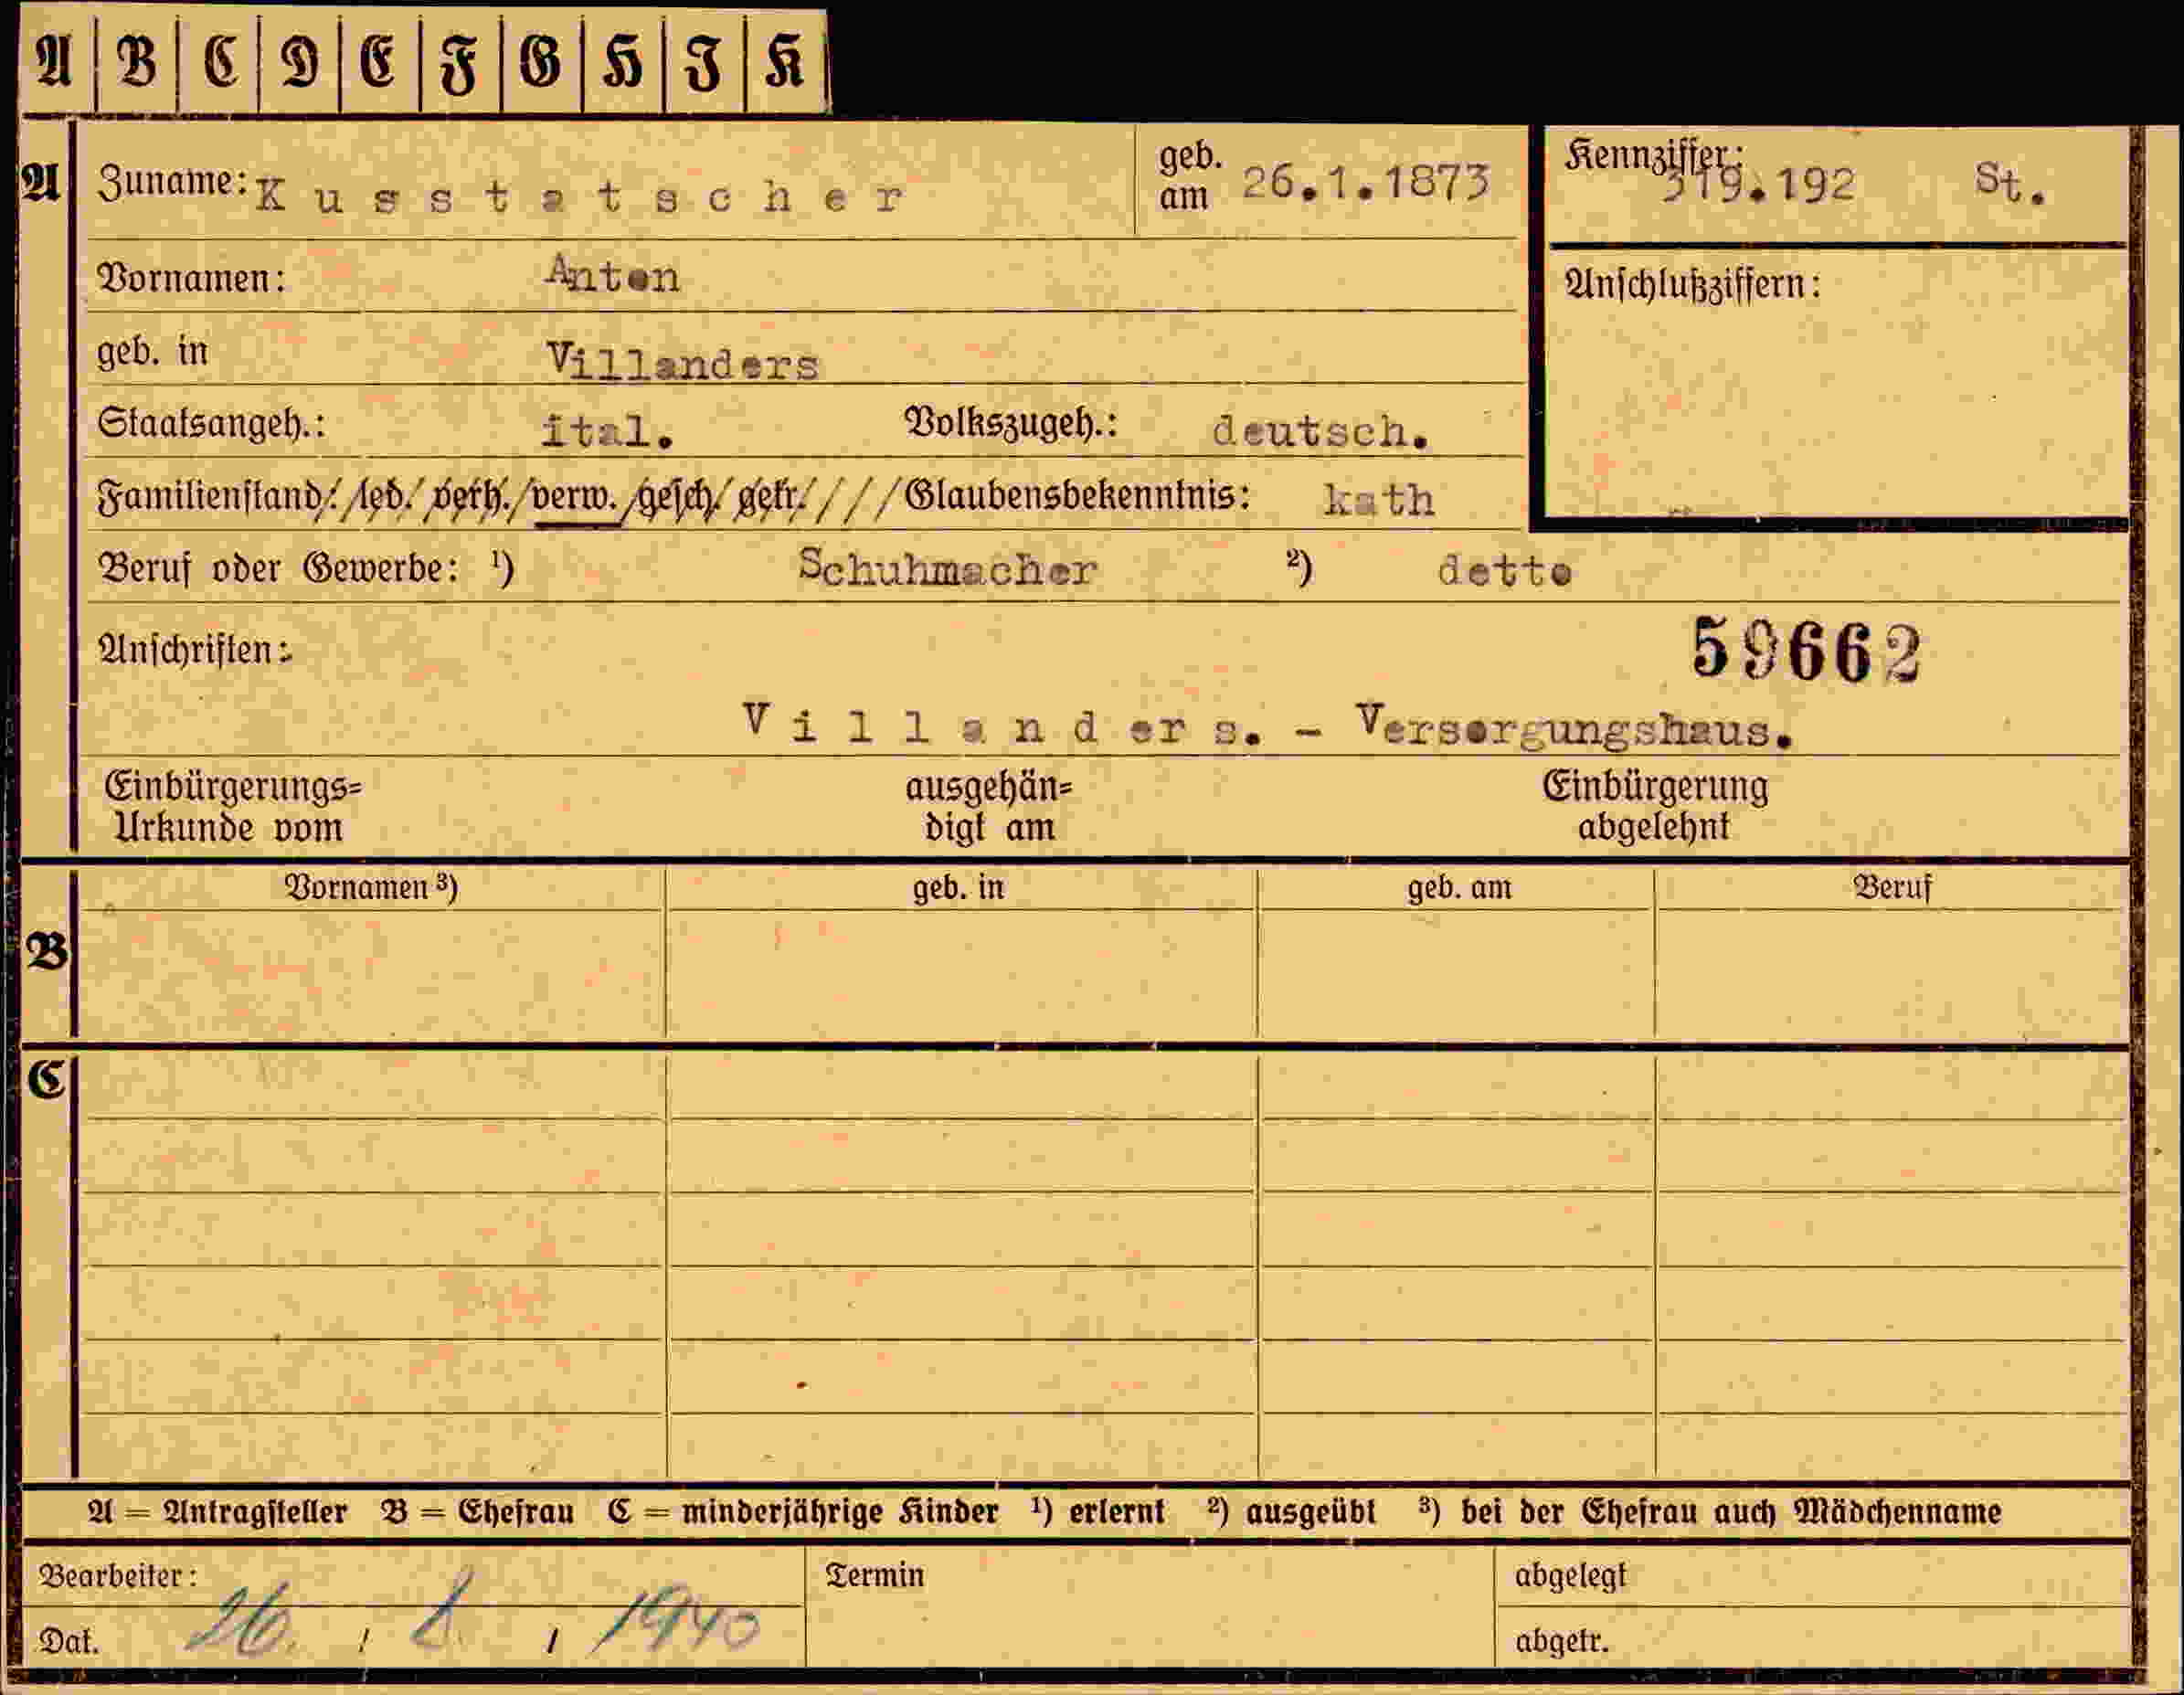 A B C D E F G H I K
A Zuname: Kusstatscher geb. am 26.1.1873 Kennziffer: 319.192 St.
Vornamen: Anton Anschlußziffern:
geb. in Villanders
Staatsangeh.: ital. Volkszugeh.: deutsch.
Familienstand: led. verh. verw. gesch. getr. Glaubensbekenntnis: kath
Beruf oder Gewerbe: ¹) Schuhmacher ²) detto
Anschriften: 59662
Villanders. - Versorgungshaus.
Einbürgerungs= ausgehän= Einbürgerung
Urkunde vom digt am abgelehnt
B Vornamen ³) geb. in geb. am Beruf
C
A = Antragsteller B = Ehefrau C = minderjährige Kinder ¹) erlernt ²) ausgeübt ³) bei der Ehefrau auch Mädchenname
Bearbeiter: Termin abgelegt
Dat. 26. / 8. / 1940 abgetr.